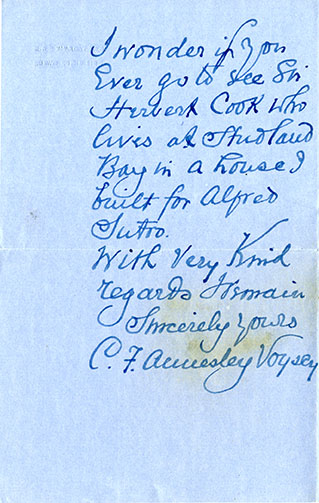 I wonder if you
Ever go to see Sir
Herbert Cook who
lives at Studland
Bay in a house I
built for Alfred
Sutro.
With Very Kind
regards I remain
Sincerely yours
C. F. Annesley Voysey